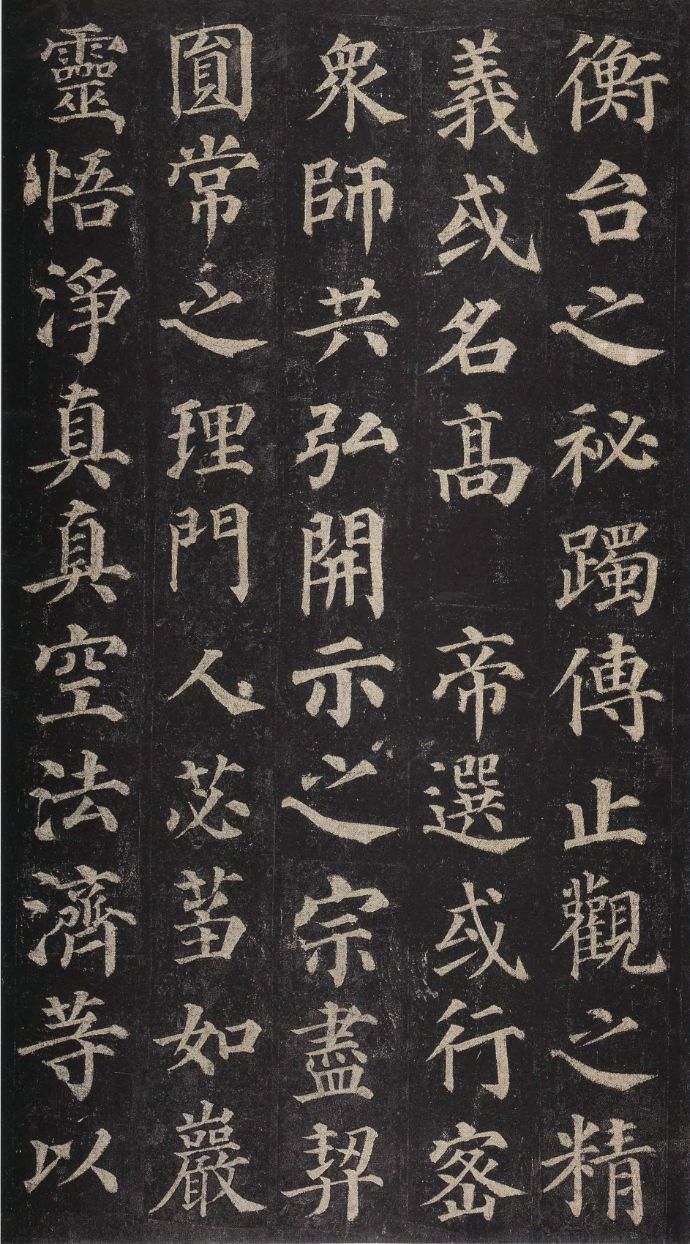 衡台之祕躅傳止觀之精
義或名髙　帝選或行宻
衆師共弘開示之宗盡契
圎常之理門人苾蒭如巖
靈悟淨真真空法濟等以